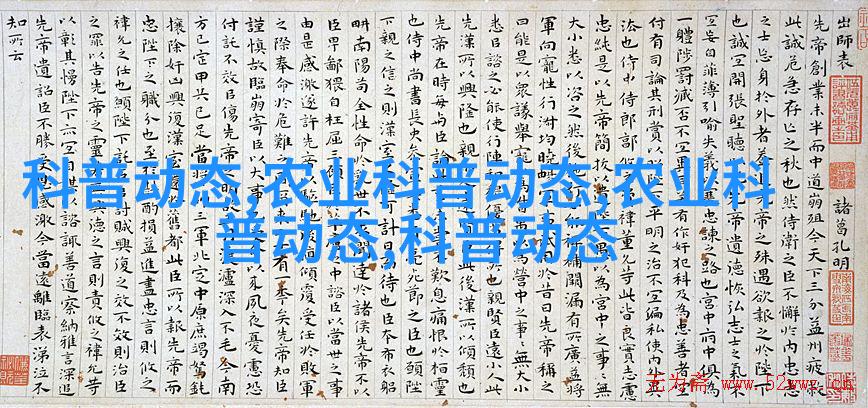 出師表
諸葛孔明
先帝創業未半而中道崩殂今天下三分益州疲敝
此誠危急存亡之秋也然侍衛之臣不懈於內忠志
之士忘身於外者蓋追先帝之殊遇欲報之於陛下
也誠宜開張聖聽帝遺德恢弘志士之氣不
宜妄自菲薄引喻失義忠諫之路也宮中府中俱為
一體陟罰臧否不宜有作奸犯科及為忠善者宜
付有司論其刑賞以平明之治不宜偏私使內外異
法也侍中侍郎郭禕董允等此皆良實志慮
忠純是以先帝簡拔以愚以為宮中之事事無
大小悉以咨之然後裨補闕漏有所廣益將
軍向寵性行淑均曉暢試用於昔日先帝稱之
曰能是以眾議舉寵為愚以為營中之事事無大小
悉以咨之必能使行陣和也親賢臣遠小人此
先漢所以興隆也親小此後漢所以傾頹也
先帝在時每與臣論歎息痛恨於桓靈
也侍中尚書長史參死節之臣也願陛
下親之信之則漢室計日而待也臣本布衣躬
耕南陽苟全性命於聞達於諸侯先帝不以
臣卑鄙猥自枉屈三顧中諮臣以當世之事
由是感激遂許先傾覆受任於敗軍
之際奉命於危難有一年矣先帝知臣
謹慎故臨崩寄臣以大事以來夙夜憂慮恐
付託不效以傷先帝之明瀘深入不毛今南
方已定甲兵已足當三軍北定中原庶竭駑鈍
攘除奸凶興復漢室舊都此臣所以報先帝而
忠陛下之職分也至酌損益進盡忠言則攸之
禕允之任也願陛下討賊興復之效不效則治臣
之罪以告先帝之靈興德之言則責攸之禕允等
以彰其慢陛下亦宜自以諮諏善道察納雅言深追
先帝遺詔臣不勝感激今當遠離臨表涕泣不
知所云
科普动态,农业科普动态,农业科
普动态,科普动态
无为斋 www.52wwz.cn